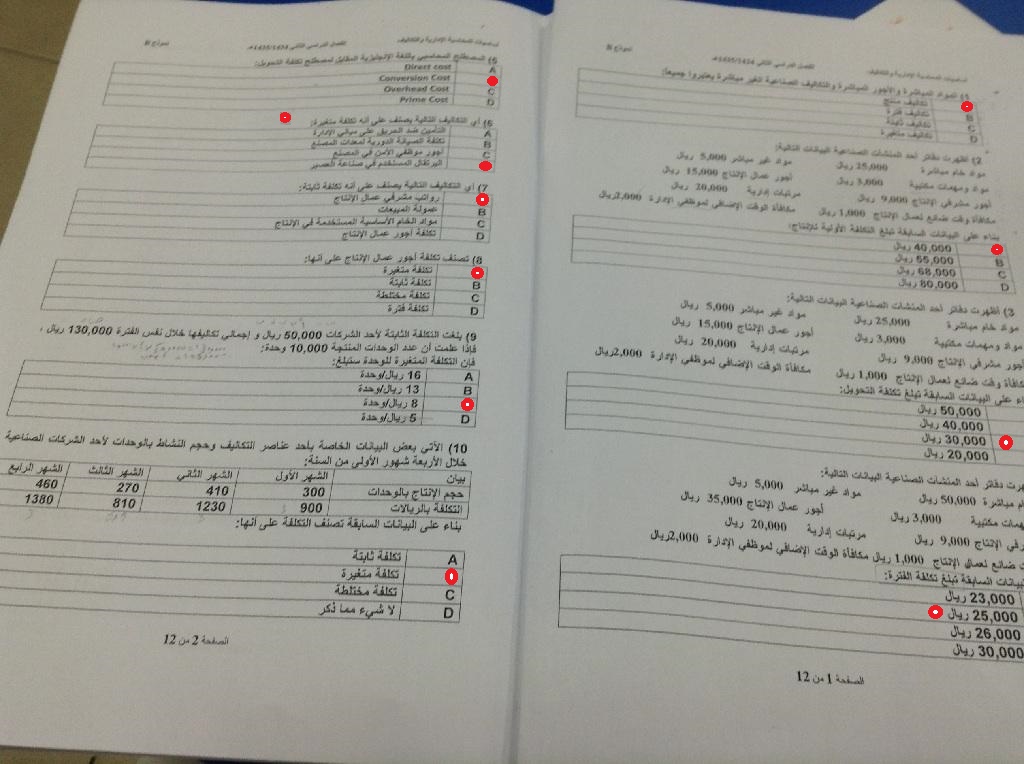 أساسيات المحاسبة الإدارية والتكاليف الفصل الدراسي الثاني 1435/1434هـ نموذج B
1) المواد المباشرة والأجور المباشرة والتكاليف الصناعية الغير مباشرة يعتبروا جميعاً:
تكاليف منتج
B تكاليف فترة
C تكاليف ثابتة
D تكاليف متغيرة
2) أظهرت دفاتر أحد المنشآت الصناعية البيانات التالية:
مواد خام مباشرة 25,000 ريال مواد غير مباشر 5,000 ريال
مواد ومهمات مكتبية 3,000 ريال أجور عمال الإنتاج 15,000 ريال
أجور مشرفي الإنتاج 9,000 ريال مرتبات إدارية 20,000 ريال
مكافأة وقت ضائع لعمال الإنتاج 1,000 ريال مكافأة الوقت الإضافي لموظفي الإدارة 2,000ريال
بناء على البيانات السابقة تبلغ التكلفة الأولية للإنتاج:
40,000 ريال
B 55,000 ريال
C 68,000 ريال
D 80,000 ريال
3) أظهرت دفاتر أحد المنشآت الصناعية البيانات التالية:
مواد خام مباشرة 25,000 ريال مواد غير مباشر 5,000 ريال
مواد ومهمات مكتبية 3,000 ريال أجور عمال الإنتاج 15,000 ريال
أجور مشرفي الإنتاج 9,000 ريال مرتبات إدارية 20,000 ريال
مكافأة وقت ضائع لعمال الإنتاج 1,000 ريال مكافأة الوقت الإضافي لموظفي الإدارة 2,000ريال
على البيانات السابقة تبلغ تكلفة التحويل:
50,000 ريال
40,000 ريال
30,000 ريال
20,000 ريال
دفاتر أحد المنشآت الصناعية البيانات التالية:
مباشرة 50,000 ريال مواد غير مباشر 5,000 ريال
مكتبية 3,000 ريال أجور عمال الإنتاج 35,000 ريال
الإنتاج 9,000 ريال مرتبات إدارية 20,000 ريال
ضائع لعمال الإنتاج 1,000 ريال مكافأة الوقت الإضافي لموظفي الإدارة 2,000ريال
السابقة تبلغ تكلفة الفترة:
23,000 ريال
25,000 ريال
26,000 ريال
30,000 ريال
الصفحة 1 من 12
أساسيات المحاسبة الإدارية والتكاليف الفصل الدراسي الثاني 1435/1434هـ نموذج B
5) المصطلح المحاسبي باللغة الإنجليزية المقابل لمصطلح تكلفة التحويل:
A Direct cost
Conversion Cost
C Overhead Cost
D Prime Cost
6) أي التكاليف التالية يصنف على أنه تكلفة متغيرة:
A التأمين ضد الحريق على مباني الإدارة
B تكلفة الصيانة الدورية لمعدات المصنع
C أجور موظفي الأمن في المصنع
البرتقال المستخدم في صناعة العصير
7) أي التكاليف التالية يصنف على أنه تكلفة ثابتة:
رواتب مشرفي عمال الإنتاج
B عمولة المبيعات
C مواد الخام الأساسية المستخدمة في الإنتاج
D تكلفة أجور عمال الإنتاج
8) تصنف تكلفة أجور عمال الإنتاج على أنها:
تكلفة متغيرة
B تكلفة ثابتة
C تكلفة مختلطة
D تكلفة فترة
9) بلغت التكلفة الثابتة لأحد الشركات 50,000 ريال و إجمالي تكاليفها خلال نفس الفترة 130,000 ريال ،
فإذا علمت أن عدد الوحدات المنتجة 10,000 وحدة:
فإن التكلفة المتغيرة للوحدة ستبلغ:
A 16 ريال/وحدة
B 13 ريال/وحدة
8 ريال/وحدة
D 5 ريال/وحدة
10) الآتي بعض البيانات الخاصة بأحد عناصر التكاليف وحجم النشاط بالوحدات لأحد الشركات الصناعية
خلال الأربعة شهور الأولي من السنة:
بيان الشهر الأول الشهر الثاني الشهر الثالث الشهر الرابع
حجم الإنتاج بالوحدات 300 410 270 460
التكلفة بالريالات 900 1230 810 1380
بناء على البيانات السابقة تصنف التكلفة على أنها:
A تكلفة ثابتة
تكلفة متغيرة
C تكلفة مختلطة
D لا شيء مما ذكر
الصفحة 2 من 12